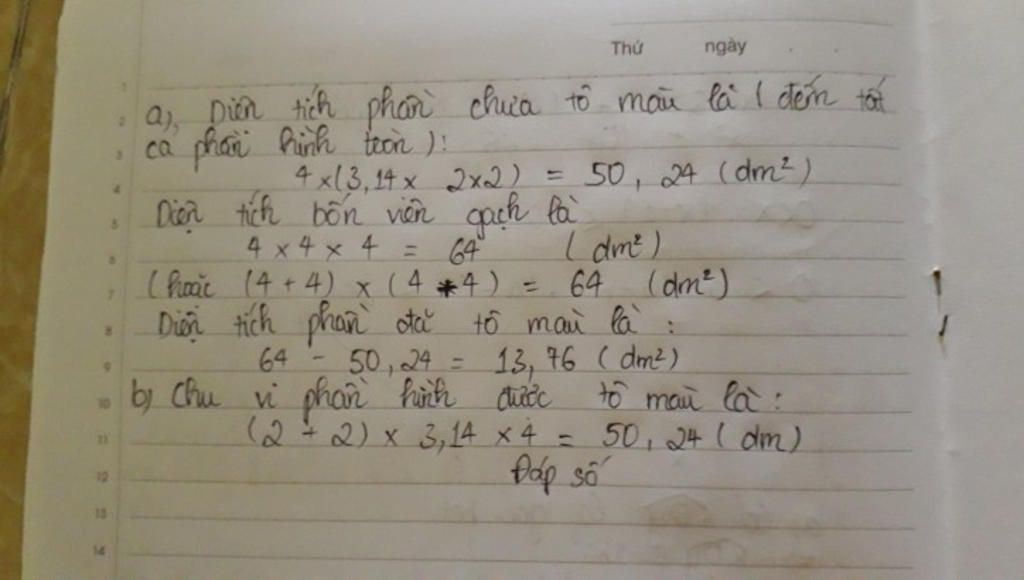 Thứ ngày
1
2 a), Diện tích phần chưa tô màu là ( đếm tất
3 cả phần hình tròn ):
4 4 x (3,14 x 2 x 2) = 50, 24 ( dm²)
5 Diện tích bốn viên gạch là
6 4 x 4 x 4 = 64 ( dm²)
7 (hoặc (4 + 4) x ( 4 + 4) = 64 (dm²)
8 Diện tích phần đã tô màu là :
9 64 - 50,24 = 13,76 ( dm²)
10 b) Chu vi phần hình được tô màu là :
11 (2 + 2) x 3,14 x 4 = 50, 24 ( dm)
12 Đáp số
13
14